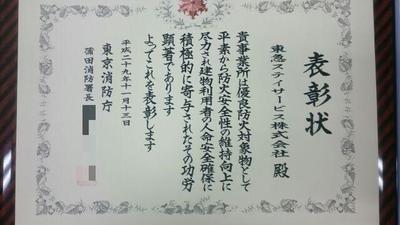 表彰状
東急ステイサービス株式会社 殿
貴事業所は優良防火対象物として
平素から防火安全性の維持向上に
尽力され建物利用者の人命安全確保に
積極的に寄与されたその功労
顕著であります
よってこれを表彰します
平成二十九年十一月十三日
東京消防庁
蒲田消防署長